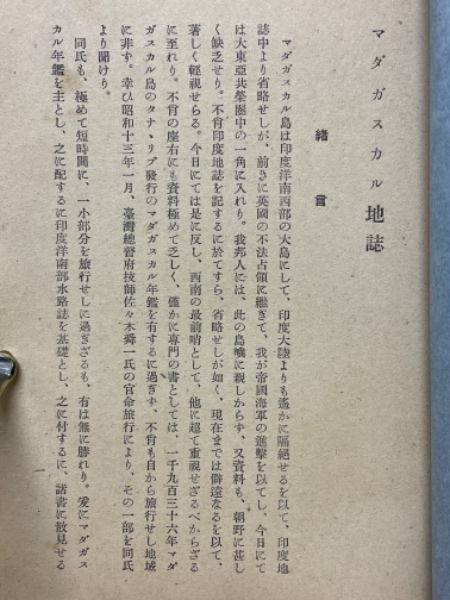 マダガスカル地誌
緒言
マダガスカル島は印度洋南西部の大島にして、印度大陸よりも遙かに隔絕せるを以て、印度地
誌中より省略せしが、前きに英國の不法占領に繼ぎて、我が帝國海軍の進擊を以てし、今日にて
は大東亞共榮圈中の一角に入れり。我邦人には、此の島嶼に親しからず、又資料も、朝野に甚し
く缺乏せり。不肖印度地誌を記するに於てすら、省略せしが如く、現在までは僻遠なるを以て、
著しく輕視せらる。今日にては是に反し、西南の最前哨として、他に超て重視せざるべからざる
に至れり。不肖の座右にも資料極めて乏しく、僅かに專門の書としては、一千九百三十六年マダ
ガスカル島のタナヽリブ發行のマダガスカル年鑑を有するに過ぎず、不肖も自から旅行せし地域
に非ず。幸ひ昭和十三年一月、臺灣總督府技師佐々木舜一氏の官命旅行により、その一部を同氏
より聞けり。
同氏も、極めて短時間に、一小部分を旅行せしに過ぎざるも、有は無に勝れり。爰にマダガス
カル年鑑を主とし、之に配するに印度洋南部水路誌を基礎とし、之に付するに、諸書に散見せる
一